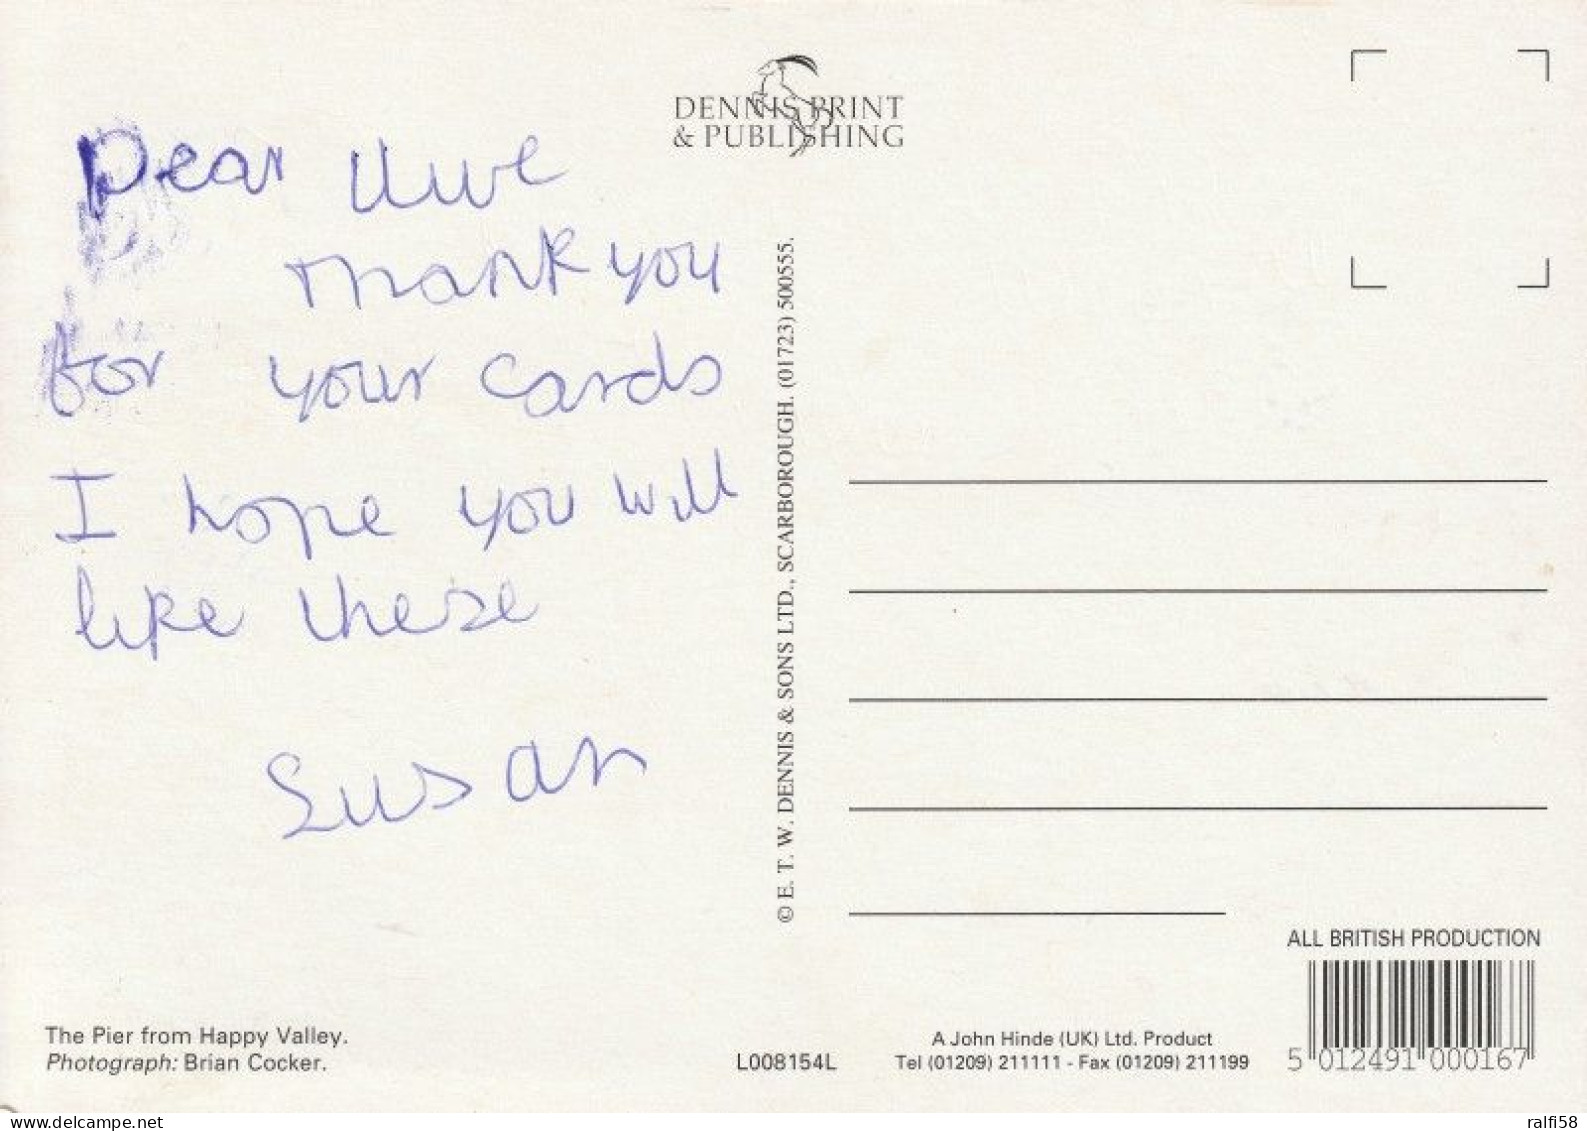 DENNIS PRINT
& PUBLISHING
Dear Uwe
Thank you
for your cards
I hope you will
like these
Susan
© E. T. W. DENNIS & SONS LTD., SCARBOROUGH. (01723) 500555.
The Pier from Happy Valley.
Photograph: Brian Cocker.
L008154L
A John Hinde (UK) Ltd. Product
Tel (01209) 211111 - Fax (01209) 211199
ALL BRITISH PRODUCTION
5 012491 000167
www.delcampe.net
ralfi58